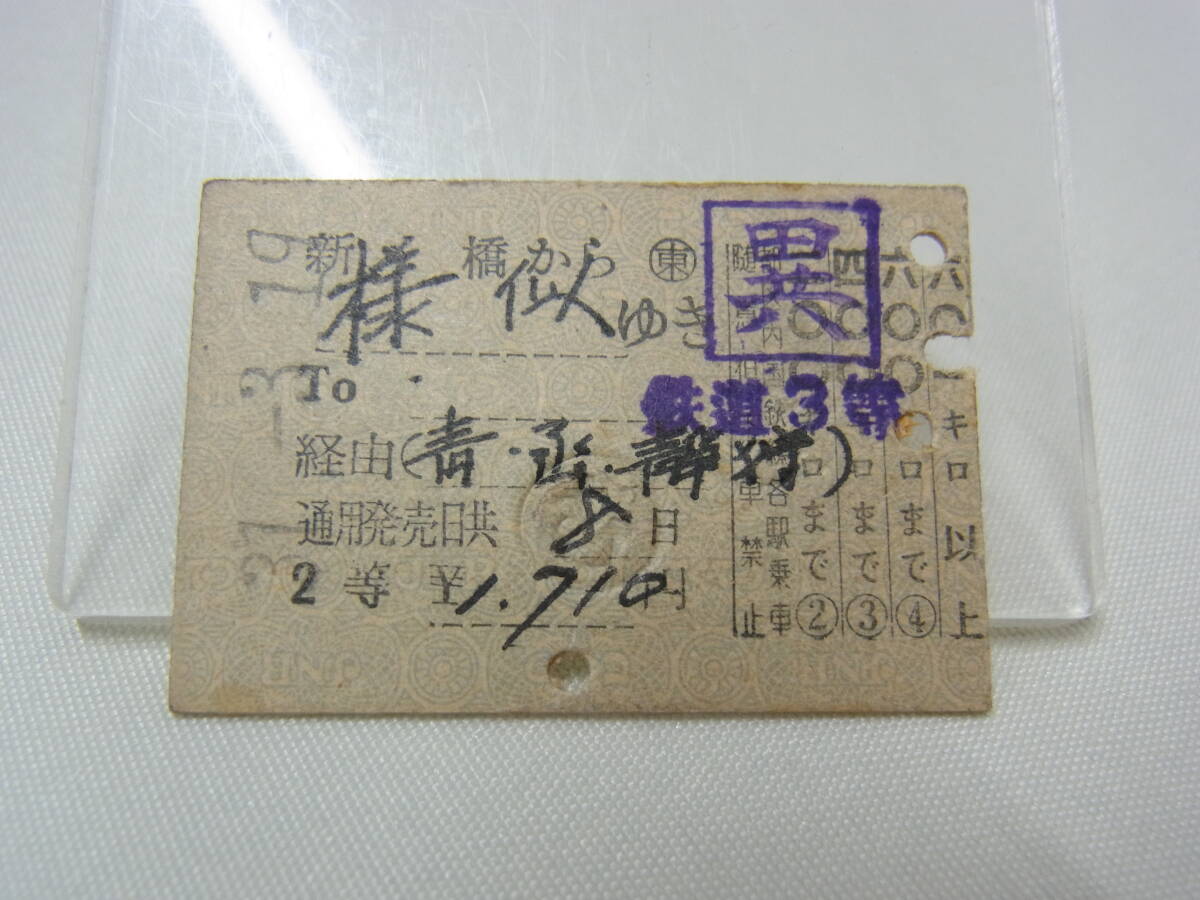 新橋から 東
様似ゆき
To
経由(青・函・静狩)
通用発売日共 8日
2等 ¥1.710円
異
鉄道3等
31-3.19
六〇一キロ以上
六〇〇キロまで④
四〇〇キロまで③
キロまで②
内各駅乗車
車禁止